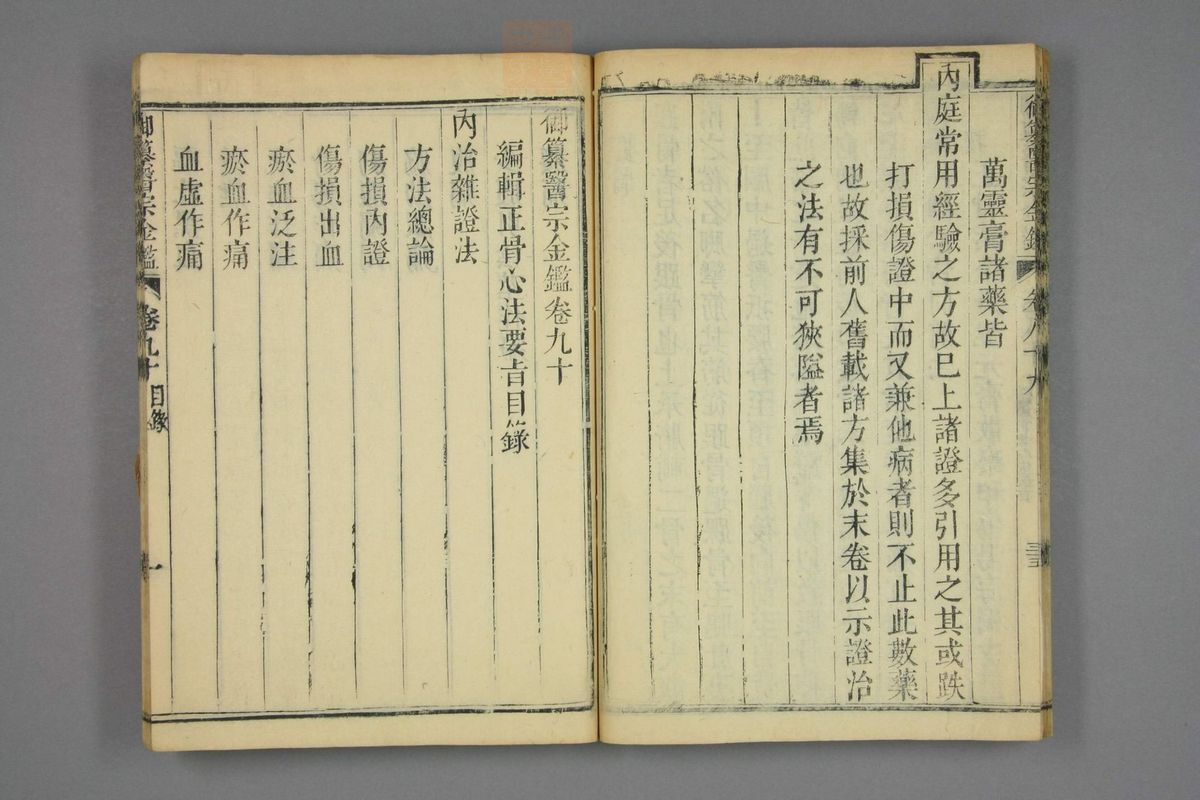 萬靈膏諸藥皆
內庭常用經驗之方故已上諸證多引用之其或跌
打損傷證中而又兼他病者則不止此數藥
也故採前人舊載諸方集於末卷以示證治
之法有不可狹隘者焉
御纂醫宗金鑑卷九十
編輯正骨心法要㫖目錄
內治雜證法
方法總論
傷損內證
傷損出血
瘀血泛注
瘀血作痛
血虛作痛
御纂醫宗金鑑 卷九十 目錄 一